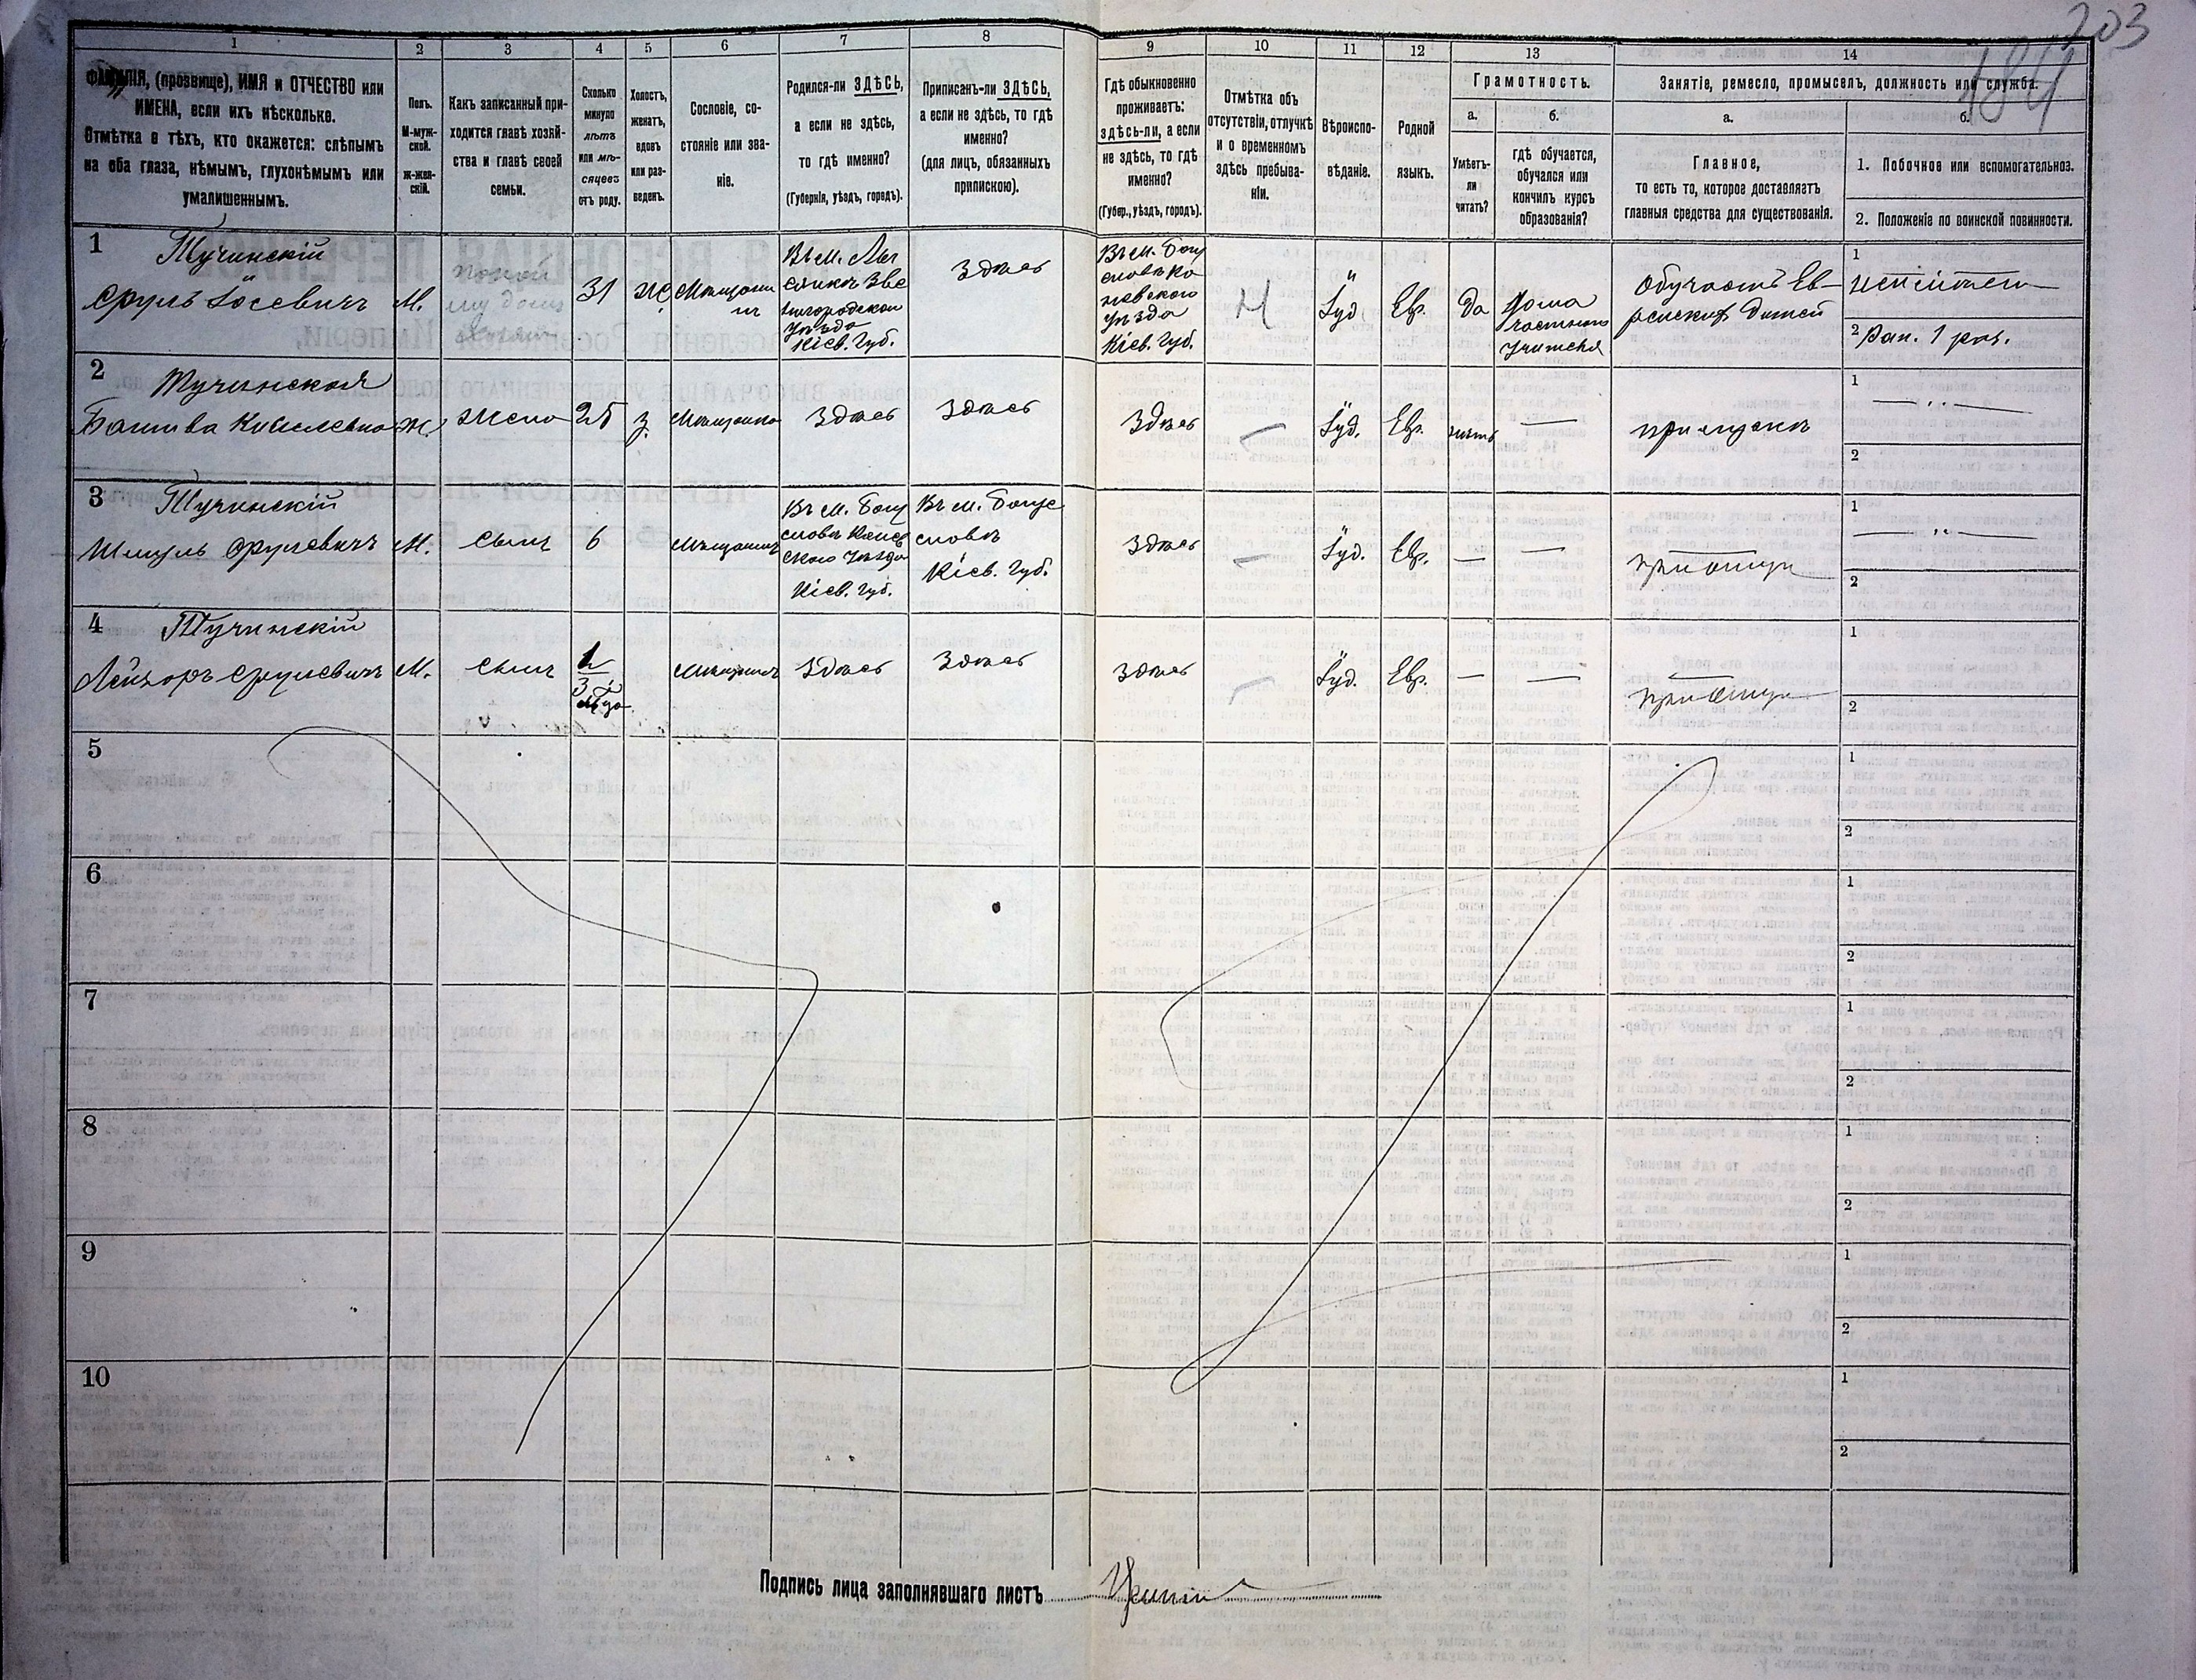 203
184
1
2
3
4
5
6
7
8
9
10
11
12
13
14
ФАМИЛІЯ, (прозвище), ИМЯ и ОТЧЕСТВО или
ИМЕНА, если ихъ нѣсколько.
Отмѣтка о тѣхъ, кто окажется: слѣпымъ
на оба глаза, нѣмымъ, глухонѣмымъ или
умалишеннымъ.
Полъ.
М-муж-
ской.
ж-жен-
скій.
Какъ записанный при-
ходится главѣ хозяй-
ства и главѣ своей
семьи.
Сколько
минуло
лѣтъ
или мѣ-
сяцевъ
отъ роду.
Холостъ,
женатъ,
вдовъ
или раз-
веденъ.
Сословіе, со-
стояніе или зва-
ніе.
Родился-ли ЗДѢСЬ,
а если не здѣсь,
то гдѣ именно?
(Губернія, уѣздъ, городъ).
Приписанъ-ли ЗДѢСЬ,
а если не здѣсь, то гдѣ
именно?
(для лицъ, обязанныхъ
припискою).
Гдѣ обыкновенно
проживаетъ:
здѣсь-ли, а если
не здѣсь, то гдѣ
именно?
(Губер., уѣздъ, городъ).
Отмѣтка объ
отсутствіи, отлучкѣ
и о временномъ
здѣсь пребыва-
ніи.
Вѣроиспо-
вѣданіе.
Родной
языкъ.
Грамотность.
а.
б.
Умѣетъ-
ли
читать?
гдѣ обучается,
обучался или
кончилъ курсъ
образованія?
Занятіе, ремесло, промыселъ, должность или служба.
а.
б.
Главное,
то есть то, которое доставляетъ
главныя средства для существованія.
1. Побочное или вспомогательное.
2. Положеніе по воинской повинности.
1
Тучинскій
Сруль Іосевичъ
М.
31
Ж.
Мѣщани
нъ
Въ м. Лы
сянкѣ Зве
нигородскаго
Уѣзда
Кіев. Губ.
Здѣсь
Въ м. Богу
словѣ Ка
невского
Уѣзда
Кіев. Губ.
Іуд.
Евр.
Да
Дома
частнаго
учителя
Обучаетъ Ев-
рейскихъ Дѣтей
1
2 Рат. 1 раз.
2
Тучинская
Башива
Ж.
Жена
25
З.
Мѣщанка
Здѣсь
Здѣсь
Здѣсь
—
Іуд.
Евр.
нѣтъ
—
при мужѣ
1
2
3
Тучинскій
Шмуль Срулевичъ
М.
Сынъ
6
Мѣщанинъ
Въ м. Богу
словѣ Канев
ского Уѣзда
Кіев. Губ.
Въ м. Богу
словѣ
Кіев. Губ.
Здѣсь
—
Іуд.
Евр.
—
—
при отцѣ
1
2
4
Тучинскій
Лейзоръ Срулевичъ
М.
Сынъ
Мѣщанинъ
Здѣсь
Здѣсь
Здѣсь
—
Іуд.
Евр.
—
—
при отцѣ
1
2
5
1
2
6
1
2
7
1
2
8
1
2
9
1
2
10
1
2
Подпись лица заполнявшаго листъ